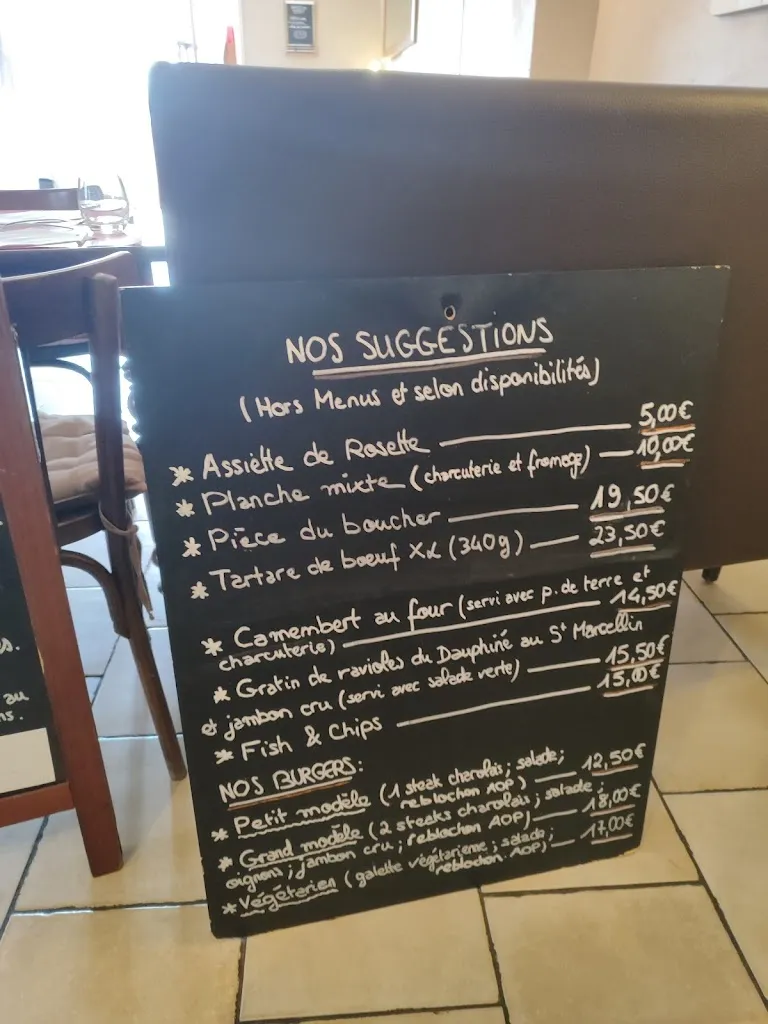 NOS SUGGESTIONS
(Hors Menus et selon disponibilités)
* Assiette de Rosette 5,00€
* Planche mixte (charcuterie et fromage) 10,00€
* Pièce du boucher 19,50€
* Tartare de boeuf XL (340g) 23,50€
* Camembert au four (servi avec p. de terre et
charcuterie) 14,50€
* Gratin de ravioles du Dauphiné au St Marcellin
et jambon cru (servi avec salade verte) 15,50€
* Fish & Chips 15,00€
NOS BURGERS:
* Petit modèle (1 steak charolais; salade;
reblochon AOP) 12,50€
* Grand modèle (2 steeks charolais; salade;
oignons; jambon cru; reblochon AOP) 18,00€
* Végétarien (galette végétarienne; salade;
reblochon AOP) 17,00€
s.
au
ns.